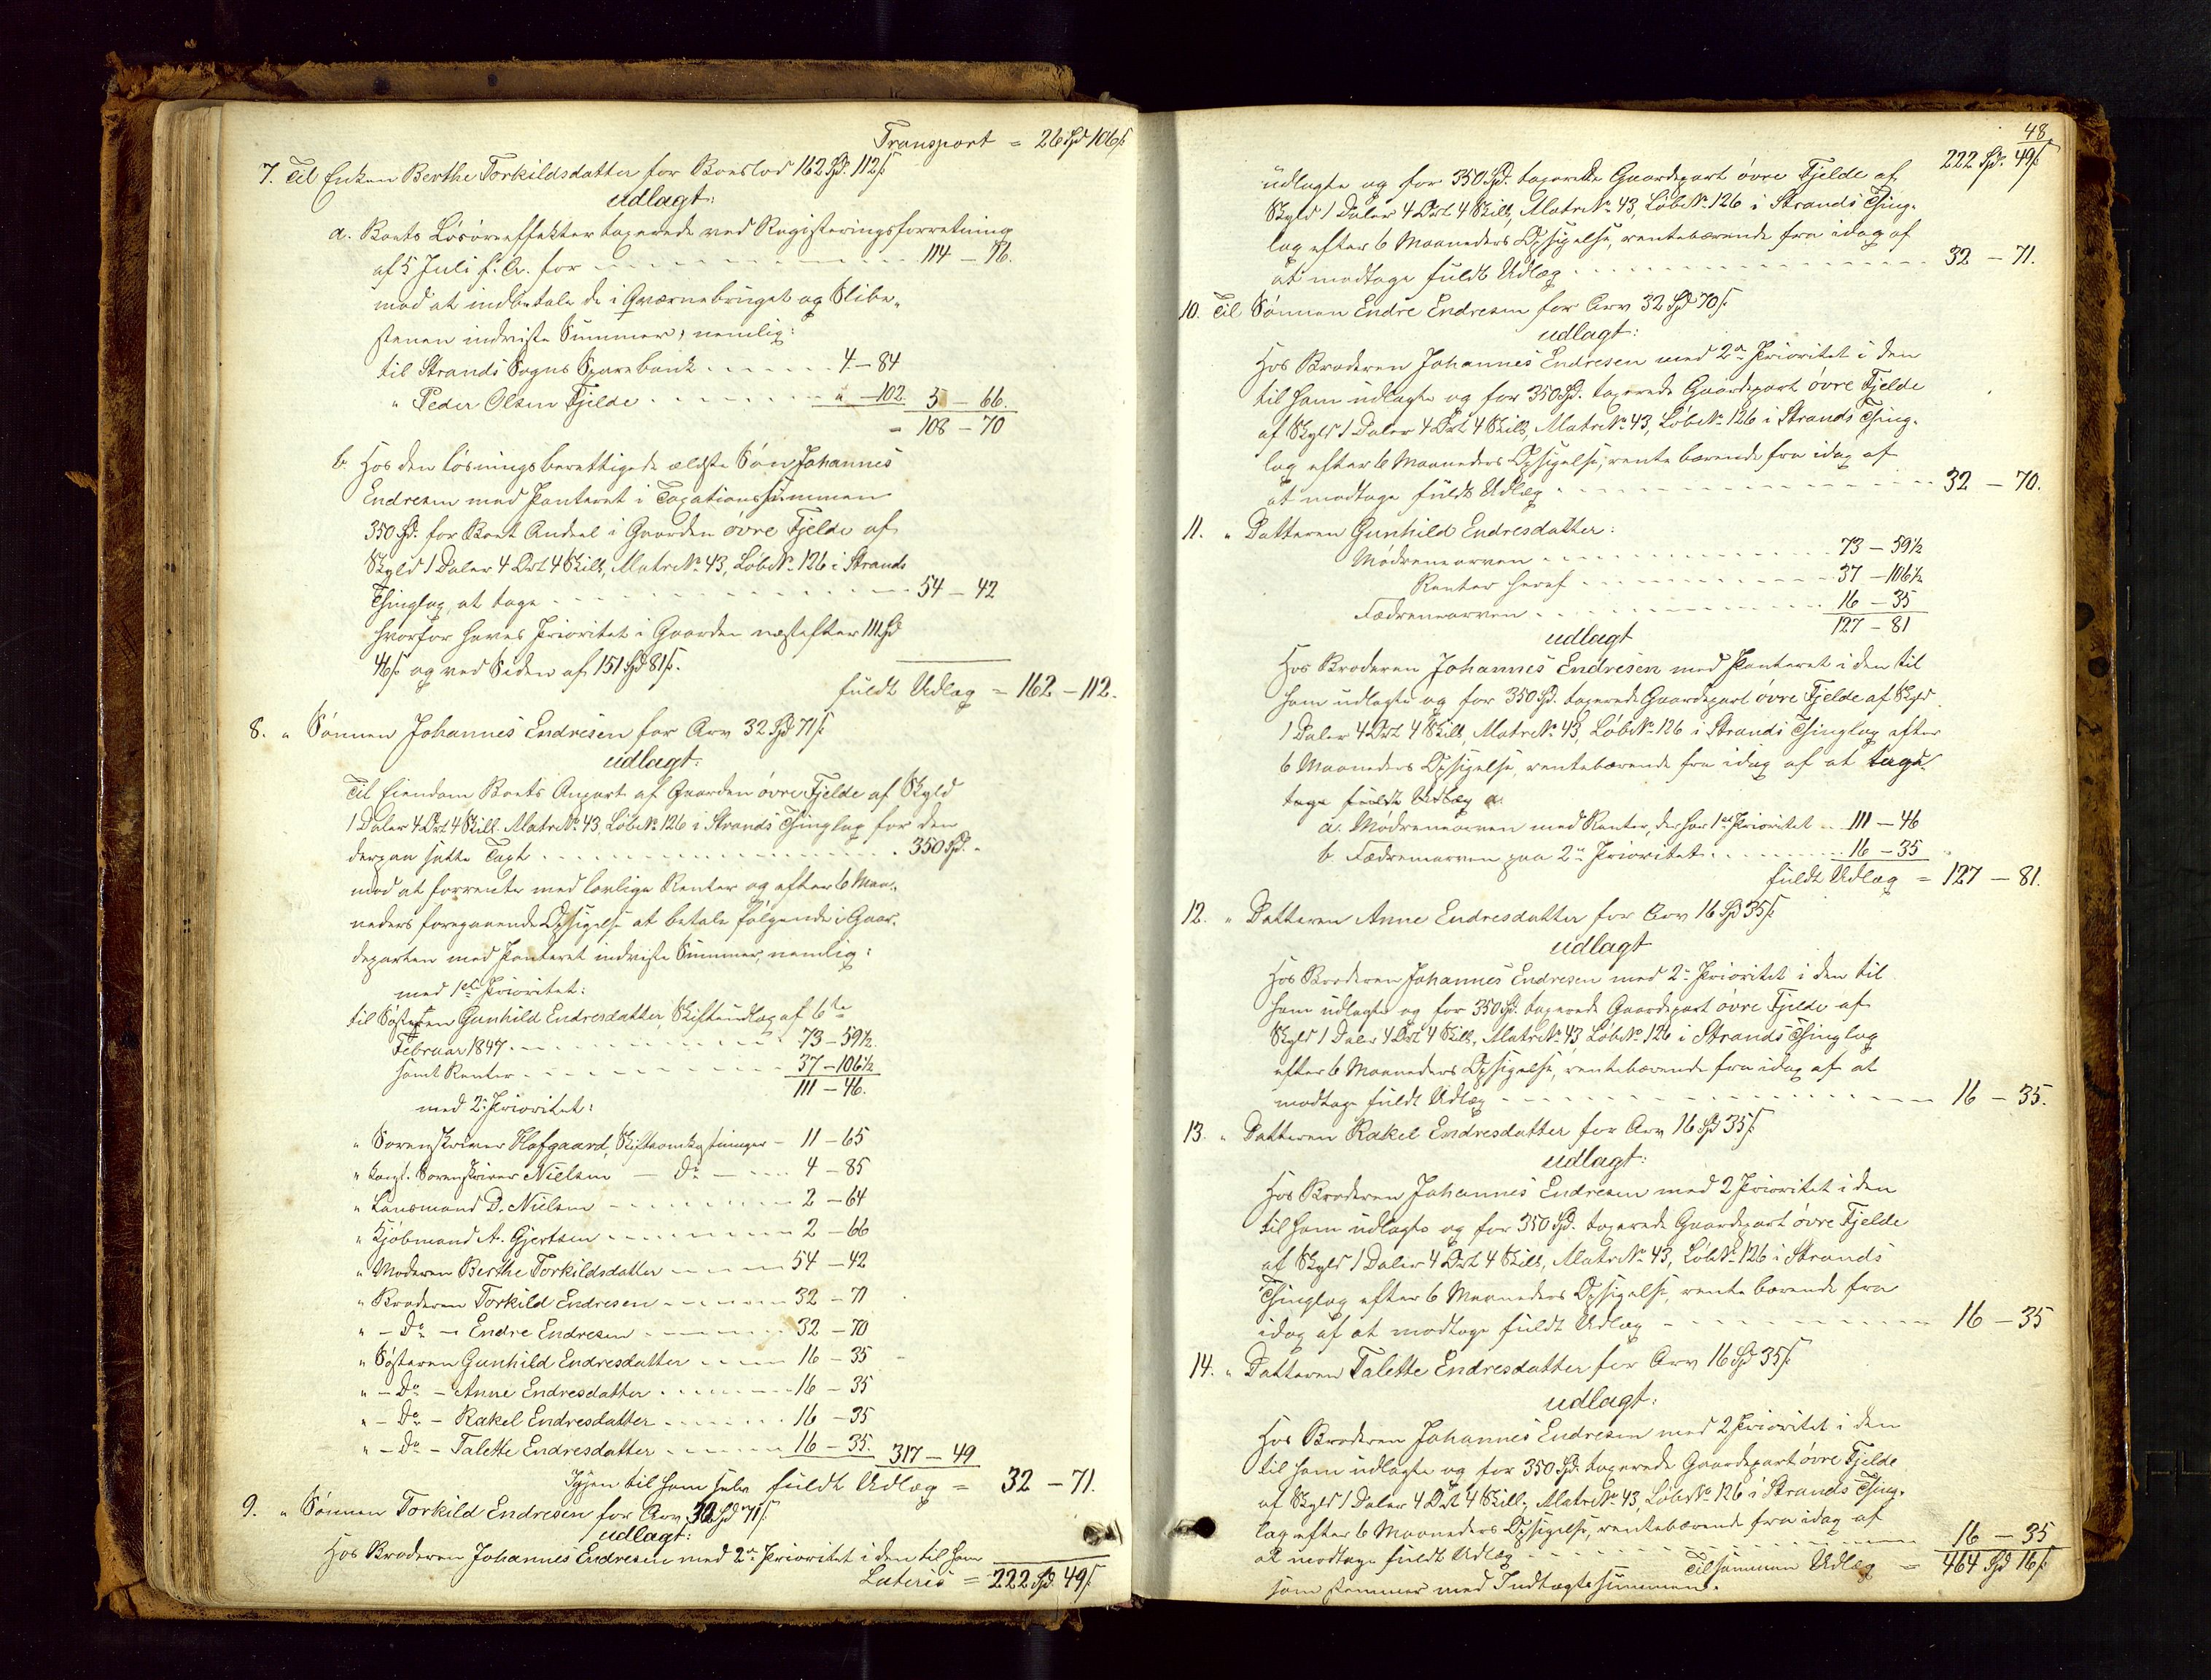 Transport = 26 Spd 106 s.
7. Til Enken Berthe Torkildsdatter for Boeslod 162 Sp. 112 s
udlagt:
a. Boets Løsøreeffekter taxerede ved Registeringsforretning
af 5 Juli f. A. for 114 – 16.
mod at indbetale de i Qværnebruget og Slibe-
stenen indviste Summer, nemlig:
til Strands Sogns Sparebank 4 – 84
" Peder Olsen Fjelde " – 102. 5 – 66.
= 108 – 70
b. Hos den løsningsberettigede ældste Søn Johannes
Endresen med Panteret i Taxationssummen
350 Sp. for Boet Andeel i Gaarden øvre Fjelde af
Skyld 1 Daler 4 Ort 4 Skill, Matr. No 43, Løb No 126 i Strands
Thinglag, at tage 54 – 42
hvorfor haves Prioritet i Gaarden næstefter 111 Sp
46 s og ved Siden af 151 Spd 81 s.
fuldt Udlæg = 162 – 112.
8. " Sønnen Johannes Endresen for Arv 32 Spd 71 s
udlagt:
Til Eiendom Boets Anpart af Gaarden øvre Fjelde af Skyld
1 Daler 4 Ort 4 Skill. Matr No 43, Løb No 126 i Strands Thinglag for den
derpaa satte Taxt 350 Sp. "
mod at forrente med lovlige Renter og efter 6 Maa-
neders foregaaende Opsigelse at betale følgende i Gaar-
departen med Panteret indviste Summer, nemlig:
med 1ste Prioritet:
til Søsteren Gunhild Endresdatter, Skifteudlæg af 6te
Februar 1847 73 – 59½
samt Renter 37 – 106½
111 – 46.
med 2n Prioritet:
" Sorenskriver Hofgaard, Skifteomkostninger – 11 – 65
" const. Sorenskriver Nielsen – Do – 4 – 85
" Lensmand D. Nielsen 2 – 64
" Kjøbmand A. Gjertsen 2 – 66
" Moderen Berthe Torkildsdatter 54 – 42
" Broderen Torkild Endresen 32 – 71
" – Do – Endre Endresen 32 – 70
" Søsteren Gunhild Endresdatter 16 – 35
" – Do – Anne Endresdatter 16 – 35
" – Do – Rakel Endresdatter 16 – 35
" – Do – Talette Endresdatter 16 – 35. 317 – 49
Igjen til ham selv fuldt Udlæg = 32 – 71.
9. " Sønnen Torkild Endresen for Arv 32 Spd 71 s
udlagt:
Hos Broderen Johannes Endresen med 2n Prioritet i den til ham
Lateris = 222 Spd 49 s
48
222 Sp. 49 s.
udlagte og for 350 Sp. taxerede Gaardepart øvre Fjelde af
Skyld 1 Daler 4 Ort 4 Skill, Matr No 43, Løb No 126 i Strands Thing-
lag efter 6 Maaneders Opsigelse, rentebærende fra idag af
at modtage fuldt Udlæg 32 – 71.
10. Til Sønnen Endre Endresen for Arv 32 Spd 70 s
udlagt:
Hos Broderen Johannes Endresen med 2n Prioritet i den
til ham udlagte og for 350 Sp. taxerede Gaardepart øvre Fjelde
af Skyld 1 Daler 4 Ort 4 Skill, Matr No 43, Løb No 126 i Strands Thing-
lag efter 6 Maaneders Opsigelse, rentebærende fra idag af
at modtage fuldt Udlæg 32 – 70.
11. " Datteren Gunhild Endresdatter:
Mødrenearven 73 – 59½
Renter heraf 37 – 106½
Fædrenearven 16 – 35
127 – 81
udlagt
Hos Broderen Johannes Endresen med Panteret i den til
ham udlagte og for 350 Sp. taxerede Gaardepart øvre Fjelde af Skyld
1 Daler 4 Ort 4 Skill, Matr No 43, Løb No 126 i Strands Thinglag efter
6 Maaneders Opsigelse, rentebærende fra idag af at
tage fuldt Udlæg
a. Mødrenearven med Renter, der har 1ste Prioritet 111 – 46
b Fædrenearven paa 2n Prioritet 16 – 35
fuldt Udlæg = 127 – 81.
12. " Datteren Anne Endresdatter for Arv 16 Spd 35 s
udlagt
Hos Broderen Johannes Endresen med 2n Prioritet i den til
ham udlagte og for 350 Sp. taxerede Gaardepart øvre Fjelde af
Skyld 1 Daler 4 Ort 4 Skill, Matr No 43, Løb No 126 i Strands Thinglag
efter 6 Maaneders Opsigelse, rentebærende fra idag af at
modtage fuldt Udlæg 16 – 35.
13. " Datteren Rakel Endresdatter for Arv 16 Spd 35 s
udlagt:
Hos Broderen Johannes Endresen med 2 Prioritet i den
til ham udlagte og for 350 Sp. taxerede Gaardepart øvre Fjelde
af Skyld 1 Daler 4 Ort 4 Skill, Matr No 43, Løb No 126 i Strands
Thinglag efter 6 Maaneders Opsigelse, rentebærende fra
idag af at modtage fuldt Udlæg 16 – 35
14. " Datteren Talette Endresdatter for Arv 16 Spd 35 s
udlagt:
Hos Broderen Johannes Endresen med 2 Prioritet i den
til ham udlagte og for 350 Sp. taxerede Gaardepart øvre Fjelde
af Skyld 1 Daler 4 Ort 4 Skill, Matr No 43, Løb No 126 i Strands Thing-
lag efter 6 Maaneders Opsigelse, rentebærende fra idag af
at modtage fuldt Udlæg 16 – 35
Tilsammen Udlæg = 464 Spd 16 s
som stemmer med Indtægtssummen.